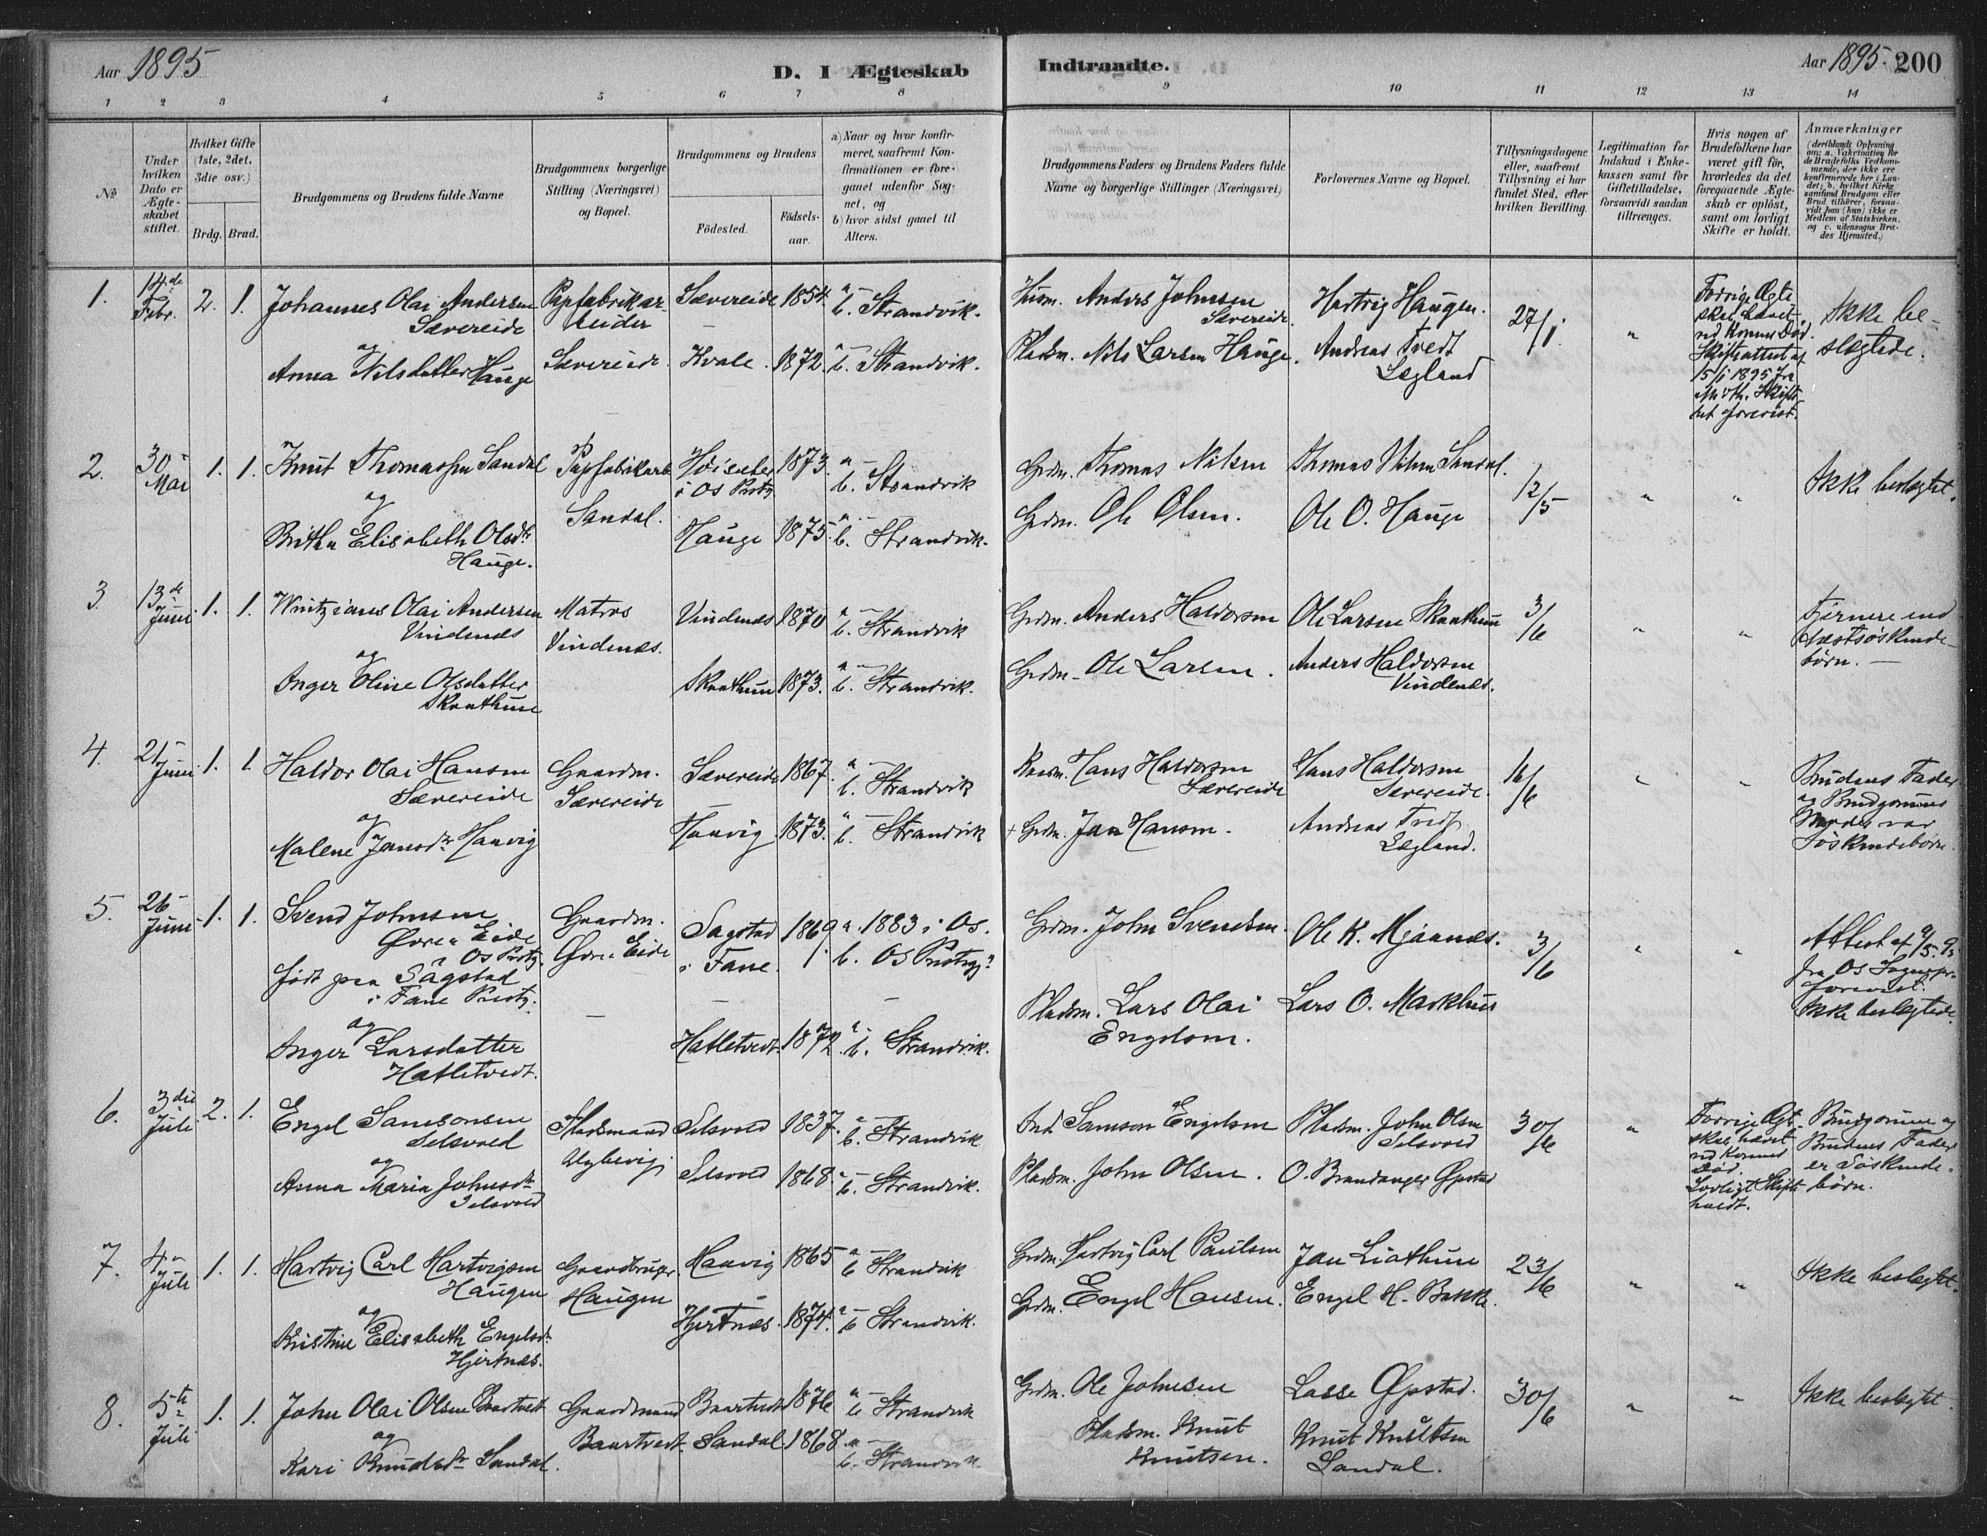 Aar 1895
D. I Ægteskab
Indtraadte.
Aar 1895. 200
1 2 3 4 5 6 7 8 9 10 11 12 13 14
№
Under hvilken Dato er Ægteskabet stiftet.
Hvilket Gifte (1ste, 2det, 3die osv.)
Brdg. Brud.
Brudgommens og Brudens fulde Navne
Brudgommens borgerlige Stilling (Næringsvei) og Bopæl.
Brudgommens og Brudens
Fødested.
Fødselsaar.
a) Naar og hvor konfirmeret, saafremt Konfirmationen er foregaaet udenfor Sognet, og
b) hvor sidst gaaet til Alters.
Brudgommens Faders og Brudens Faders fulde Navne og borgerlige Stillinger (Næringsvei)
Forlovernes Navne og Bopæl.
Tillysningsdagene eller, saafremt Tillysning ei har fundet Sted, efter hvilken Bevilling.
Legitimation for Indskud i Enkekassen samt for Giftetilladelse, forsaavidt saadan tiltrænges.
Hvis nogen af Brudefolkene har været gift før, hvorledes da det foregaaende Ægteskab er opløst, samt om lovligt Skifte er holdt.
Anmærkninger (deriblandt Oplysning om: a. Vakcination for de Brudefolks Vedkommende, der ikke ere konfirmerede her i Landet; b. hvilket Kirkesamfund Brudgom eller Brud tilhører, forsaavidt han (hun) ikke er Medlem af Statskirken, og c. udensogns Brudes Hjemsted.)
1. 14de Febr. 2. 1. Johannes Olai Andersen Sævereide
og
Anna Nilsdatter Hauge
Papfabrikarbeider Sævereide
Sævereide 1854. a — b. Strandvik.
Kvale. 1872. a — b. Strandvik.
Husm. Anders Johnsen Sævereide.
Pladsm. Nils Larsen Hauge.
Hartvig Haugen.
Andreas Tvedt Lægland
27/1.
"
Forrige Ægteskab hævet ved Konens Død. Skifteattest af 15/1 1895 fra forevist.
Ikke beslægtede.
2. 30 Mai 1. 1. Knut Thomassen Sandal
og
Britha Elisabeth Olsdtr Hauge.
Papfabrikarb. Sandal.
Høiseter i Os Prstg. 1873. a — b. Strandvik
Hauge 1875. a — b. Strandvik.
Grdm. Thomas Nilsen
Grdm. Ole Olsen.
Thomas Nilsen Sandal.
Ole O. Hauge
12/5
" "
Ikke beslægtet.
3. 13de Juni 1. 1. Olai Andersen Vindenæs
og
Inger Oline Olsdatter Skaathun
Matros Vindenæs.
Vindenæs 1870 a — b. Strandvik
Skaathun 1873. a — b. Strandvik.
Grdm. Anders Haldorsen
Grdm. Ole Larsen.
Ole Larsen Skaathun
Anders Haldorsen Vindenæs.
3/6
" "
Fjernere end Næstsøskendebørn. —
4. 21 Juni 1. 1. Haldor Olai Hansen Sævereide
og
Malene Jansdtr Haavig
Gaardm. Sævereide
Sævereide 1867. a — b. Strandvik
Haavig 1873. a — b. Strandvik
Hans Haldorsen Sævereide
+ Grdm. Jan Hansen.
Hans Haldorsen Sævereide.
Andreas Tvedt Lægland.
16/6
" "
Brudens Fader og Brudgommens Moder var Søskendebørn.
5. 26 Juni 1. 1. Svend Johnsen Øvre Eide Os Prstg.
født paa Sagstad i Fane Prstg.
og
Inger Larsdatter Hatletvedt.
Gaardm. Øvre Eide
—
Sagstad i Fane. 1869 a. 1883 i Os. b. Os Prstg.
Hatletvedt. 1872. a — b. Strandvik.
Grdm. John Svendsen.
Pladsm. Lars Olai Engelsen.
Ole K. Mjaanes.
Lars O. Markhus
3/6
" "
Attest af 9/5.95 fra Os Sognepr. forevist. Ikke beslægtede.
6. 3die Juli 2. 1. Engel Samsonsen Selsvold
og
Anna Maria Johnsdtr Selsvold
Pladsmand
Selsvold 1837. a — b. Strandvik
Selsvold 1868. a — b. Strandvik.
Ind. Samson Engelsen
Pladsm. John Olsen.
Pladsm. John Olsen Selsvold
O. Brandanger Øpstad
30/6
"
Forrige Ægteskab hævet ved Konens Død. Lovligt Skifte holdt.
Brudgommen og Brudens Fader er Søskendebørn.
7. 4 Juli 1. 1. Hartvig Carl Hartvigsen Haugen
og
Kristine Elisabeth Engelsdr. Hjertnæs.
Gaardbruger Haugen
Haavig 1865 a — b Strandvik
Hjertnæs. 1874. a — b Strandvik.
Grdm. Hartvig Carl Paulsen
Grdm. Engel Hansen.
Jan Liathun
Engel H. Bakke.
23/6
" "
Ikke beslægtet.
8. 5te Juli 1. 1. John Olai Olsen Baartvedt
og
Kari Knudsdtr Sandal.
Gaardmand Baartvedt.
Baartvedt 1876 a — b Strandvik
Sandal 1868. a — b. Strandvik.
Grdm. Ole Johnsen
Pladsm. Knut Knutsen.
Lasse Øpstad.
Knut Knutsen Sandal.
30/6
" "
Ikke beslægtet.